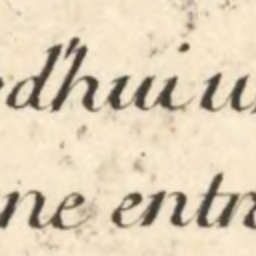 ed'hui u
ne entre